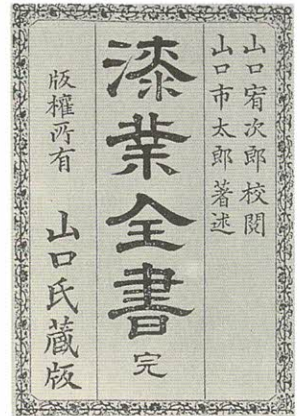 山口宥次郎校閲
山口市太郎著述
漆業全書 完
版權所有 山口氏藏版